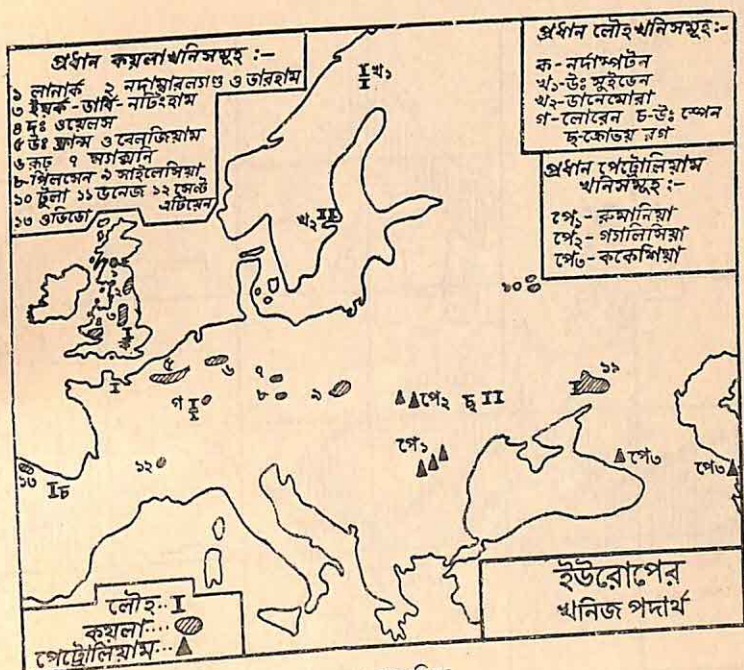 প্রধান কয়লাখনিসমূহ :-
১ লানার্ক ২ নর্দাম্বারল্যাণ্ড ও ডারহাম
৩ ইয়র্ক-ডার্বি-নটিংহাম
৪ দঃ ওয়েলস
৫ উঃ ফ্রান্স ও বেলজিয়াম
৬ রূঢ় ৭ স্যাক্সনি
৮-পিলসেন ৯ সাইলেসিয়া
১০ টুলা ১১ ডনেজ ১২ সেন্ট এটিয়েন
১৩ ওভিডো
প্রধান লৌহখনিসমূহ:-
ক-নর্দাম্পটন
খ১-উঃ সুইডেন
খ২-ডানেমোরা
গ-লোরেন চ-উঃ স্পেন
ছ-ক্রোভয় রগ
প্রধান পেট্রোলিয়াম
খনিসমূহ :-
পে১-রুমানিয়া
পে২-গ্যালিসিয়া
পে৩-ককেশিয়া
খ১
খ২
১
২
৩
৪
ক
১০
৫
৬
৭
৮
৯
গ
পে২
ছ
১১
পে১
পে৩
পে৩
১২
১৩
চ
লৌহ..
কয়লা....
পেট্রোলিয়াম...
ইউরোপের
খনিজ পদার্থ